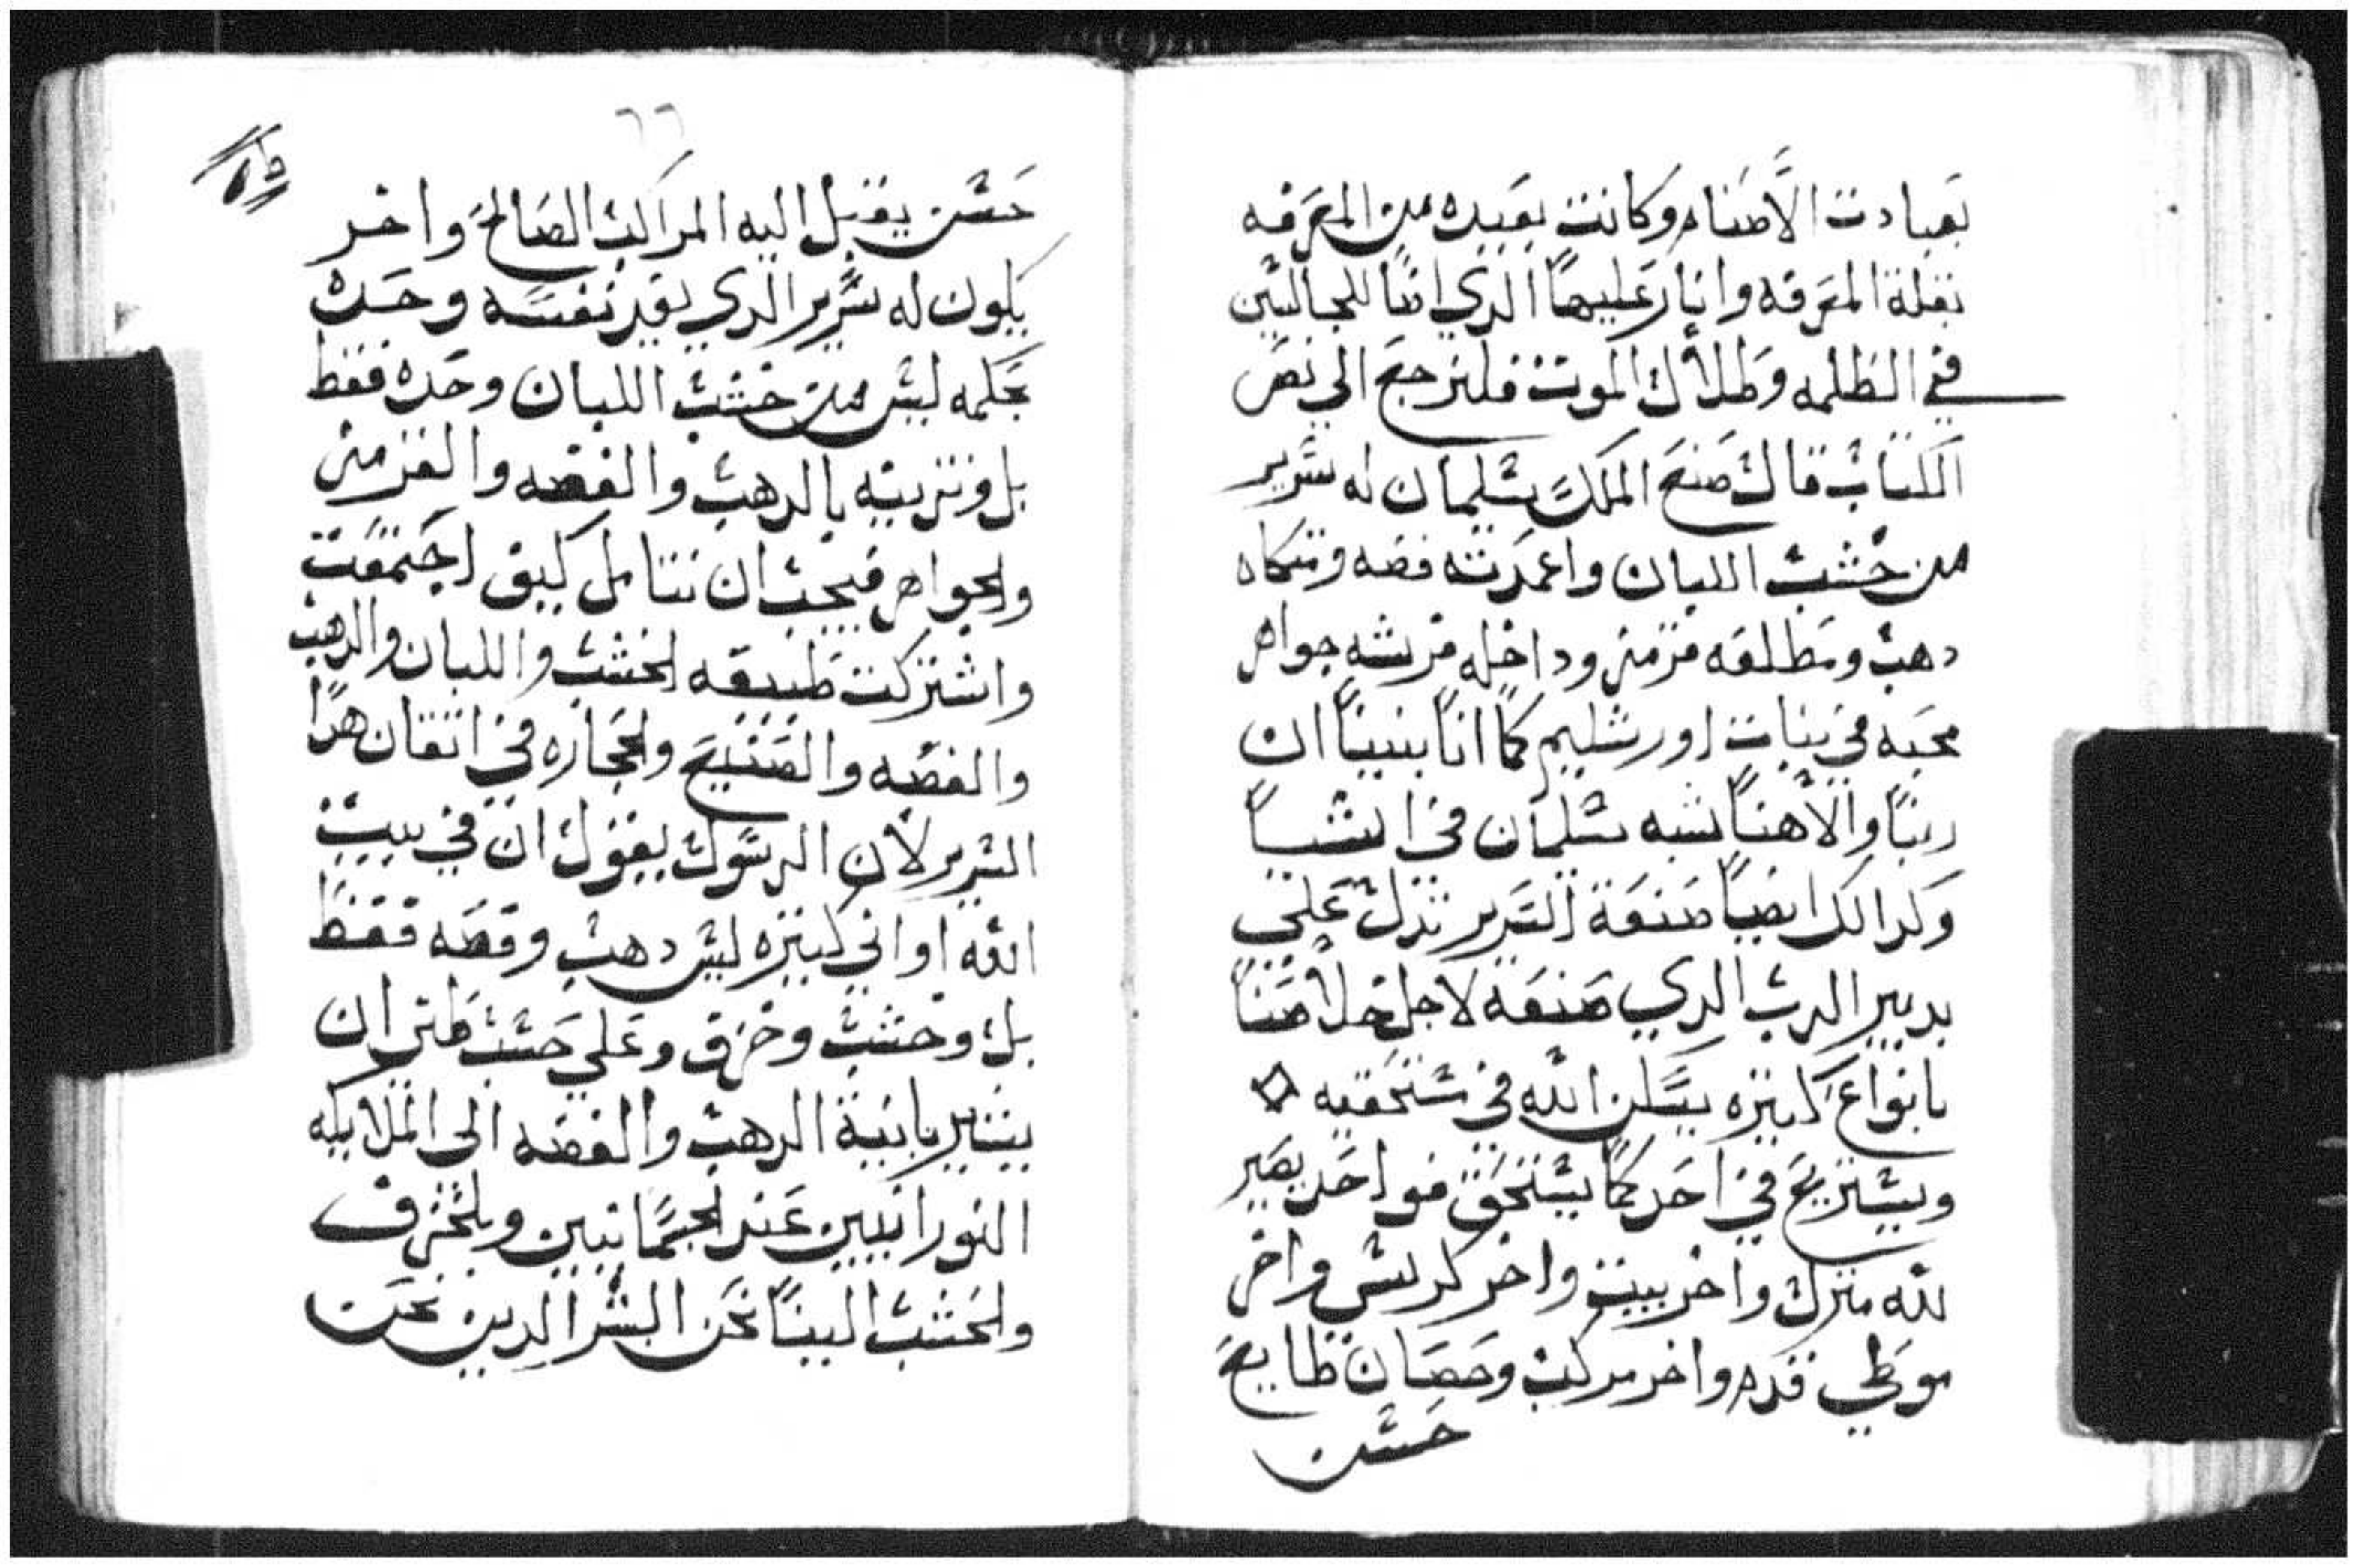 بعبادت الأصنام وكانت بعيده من المعرفه
بقلة المعرفه وانار عليها الدي اتنا للجالسين
في الظلمه وظلال الموت فلنرجع الي نص
الكتاب قال صنع الملك سليمان له سرير
من خشب اللبان واعمدته فضه ومتكاه
دهب ومطلعه قرمز وداخله فرشه جواهر
محبه في بنات اورشليم كما اننا بينا ان
ربنا والاهنا نشبه سليمان في اشيا
وكدالك ايضا صنعة السرير تدل علي
تدبير الرب الدي صنعه لاجل خلاصنا
بانواع كثيره يسكن الله في مستحقيه
ويستريح في احد كما يستحق فواحد يصير
لله منزل واخر بيت واخر كرسي واخر
موطي قدم واخر مركب وحصان طايع
حسن
٦٦
حسن يقبل اليه المراكب الصالح واخر
يكون له سرير الدي يقد نفسه وحده
بحكمه ليس من خشب اللبان وحده فقط
بل وتزينه بالدهب والفضه والقرمز
والجواهر فيجب ان نتامل كيف اجتمعت
واشتركت طبيعه الخشب واللبان والدهب
والفضه والصنيع والحجاره في اتقان هدا
السرير لان الرسول يقول ان في بيت
الله اواني كثيره ليس دهب وفضه فقط
بل وخشب وخزف وعلي حسب ظني ان
يشير بانية الدهب والفضه الي الملايكه
النورانيين عند الجسمانيين وبالخزف
والخشب الينا نحن البشر الدين نحن